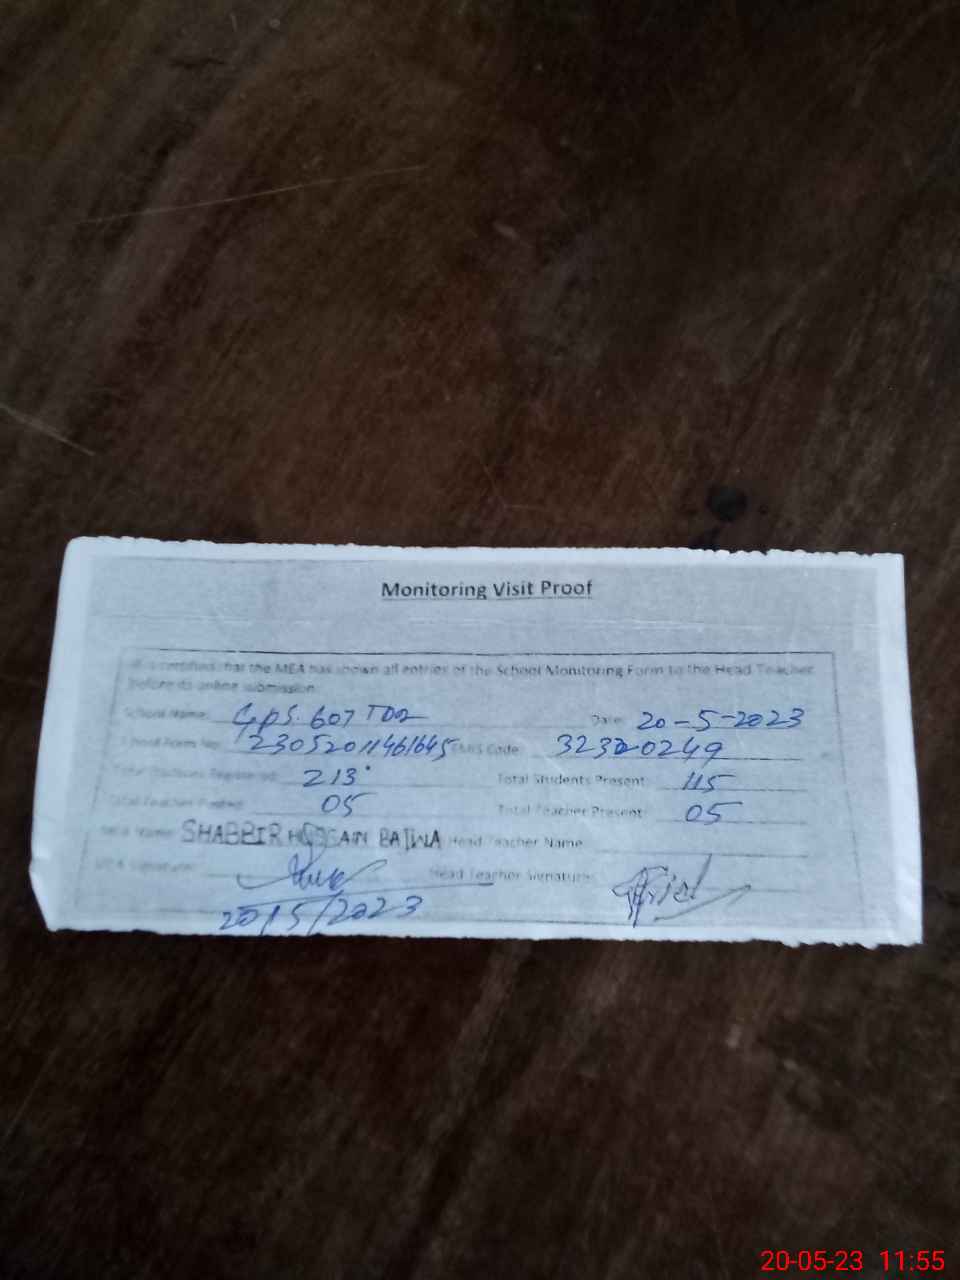 Monitoring Visit Proof
It is certified that the MEA has shown all entries of the School Monitoring Form to the Head Teacher
before its online submission.
School Name: GPS. 607 TDA Date: 20-5-2023
School Form No: 23052011461645 EMIS Code: 32320249
Total Students Registered: 213 Total Students Present: 115
Total Teacher Posted: 05 Total Teacher Present: 05
MEA Name: SHABBIR HUSSAIN BAJWA Head Teacher Name
MEA Signature: Head Teacher Signature:
20/5/2023
20-05-23 11:55